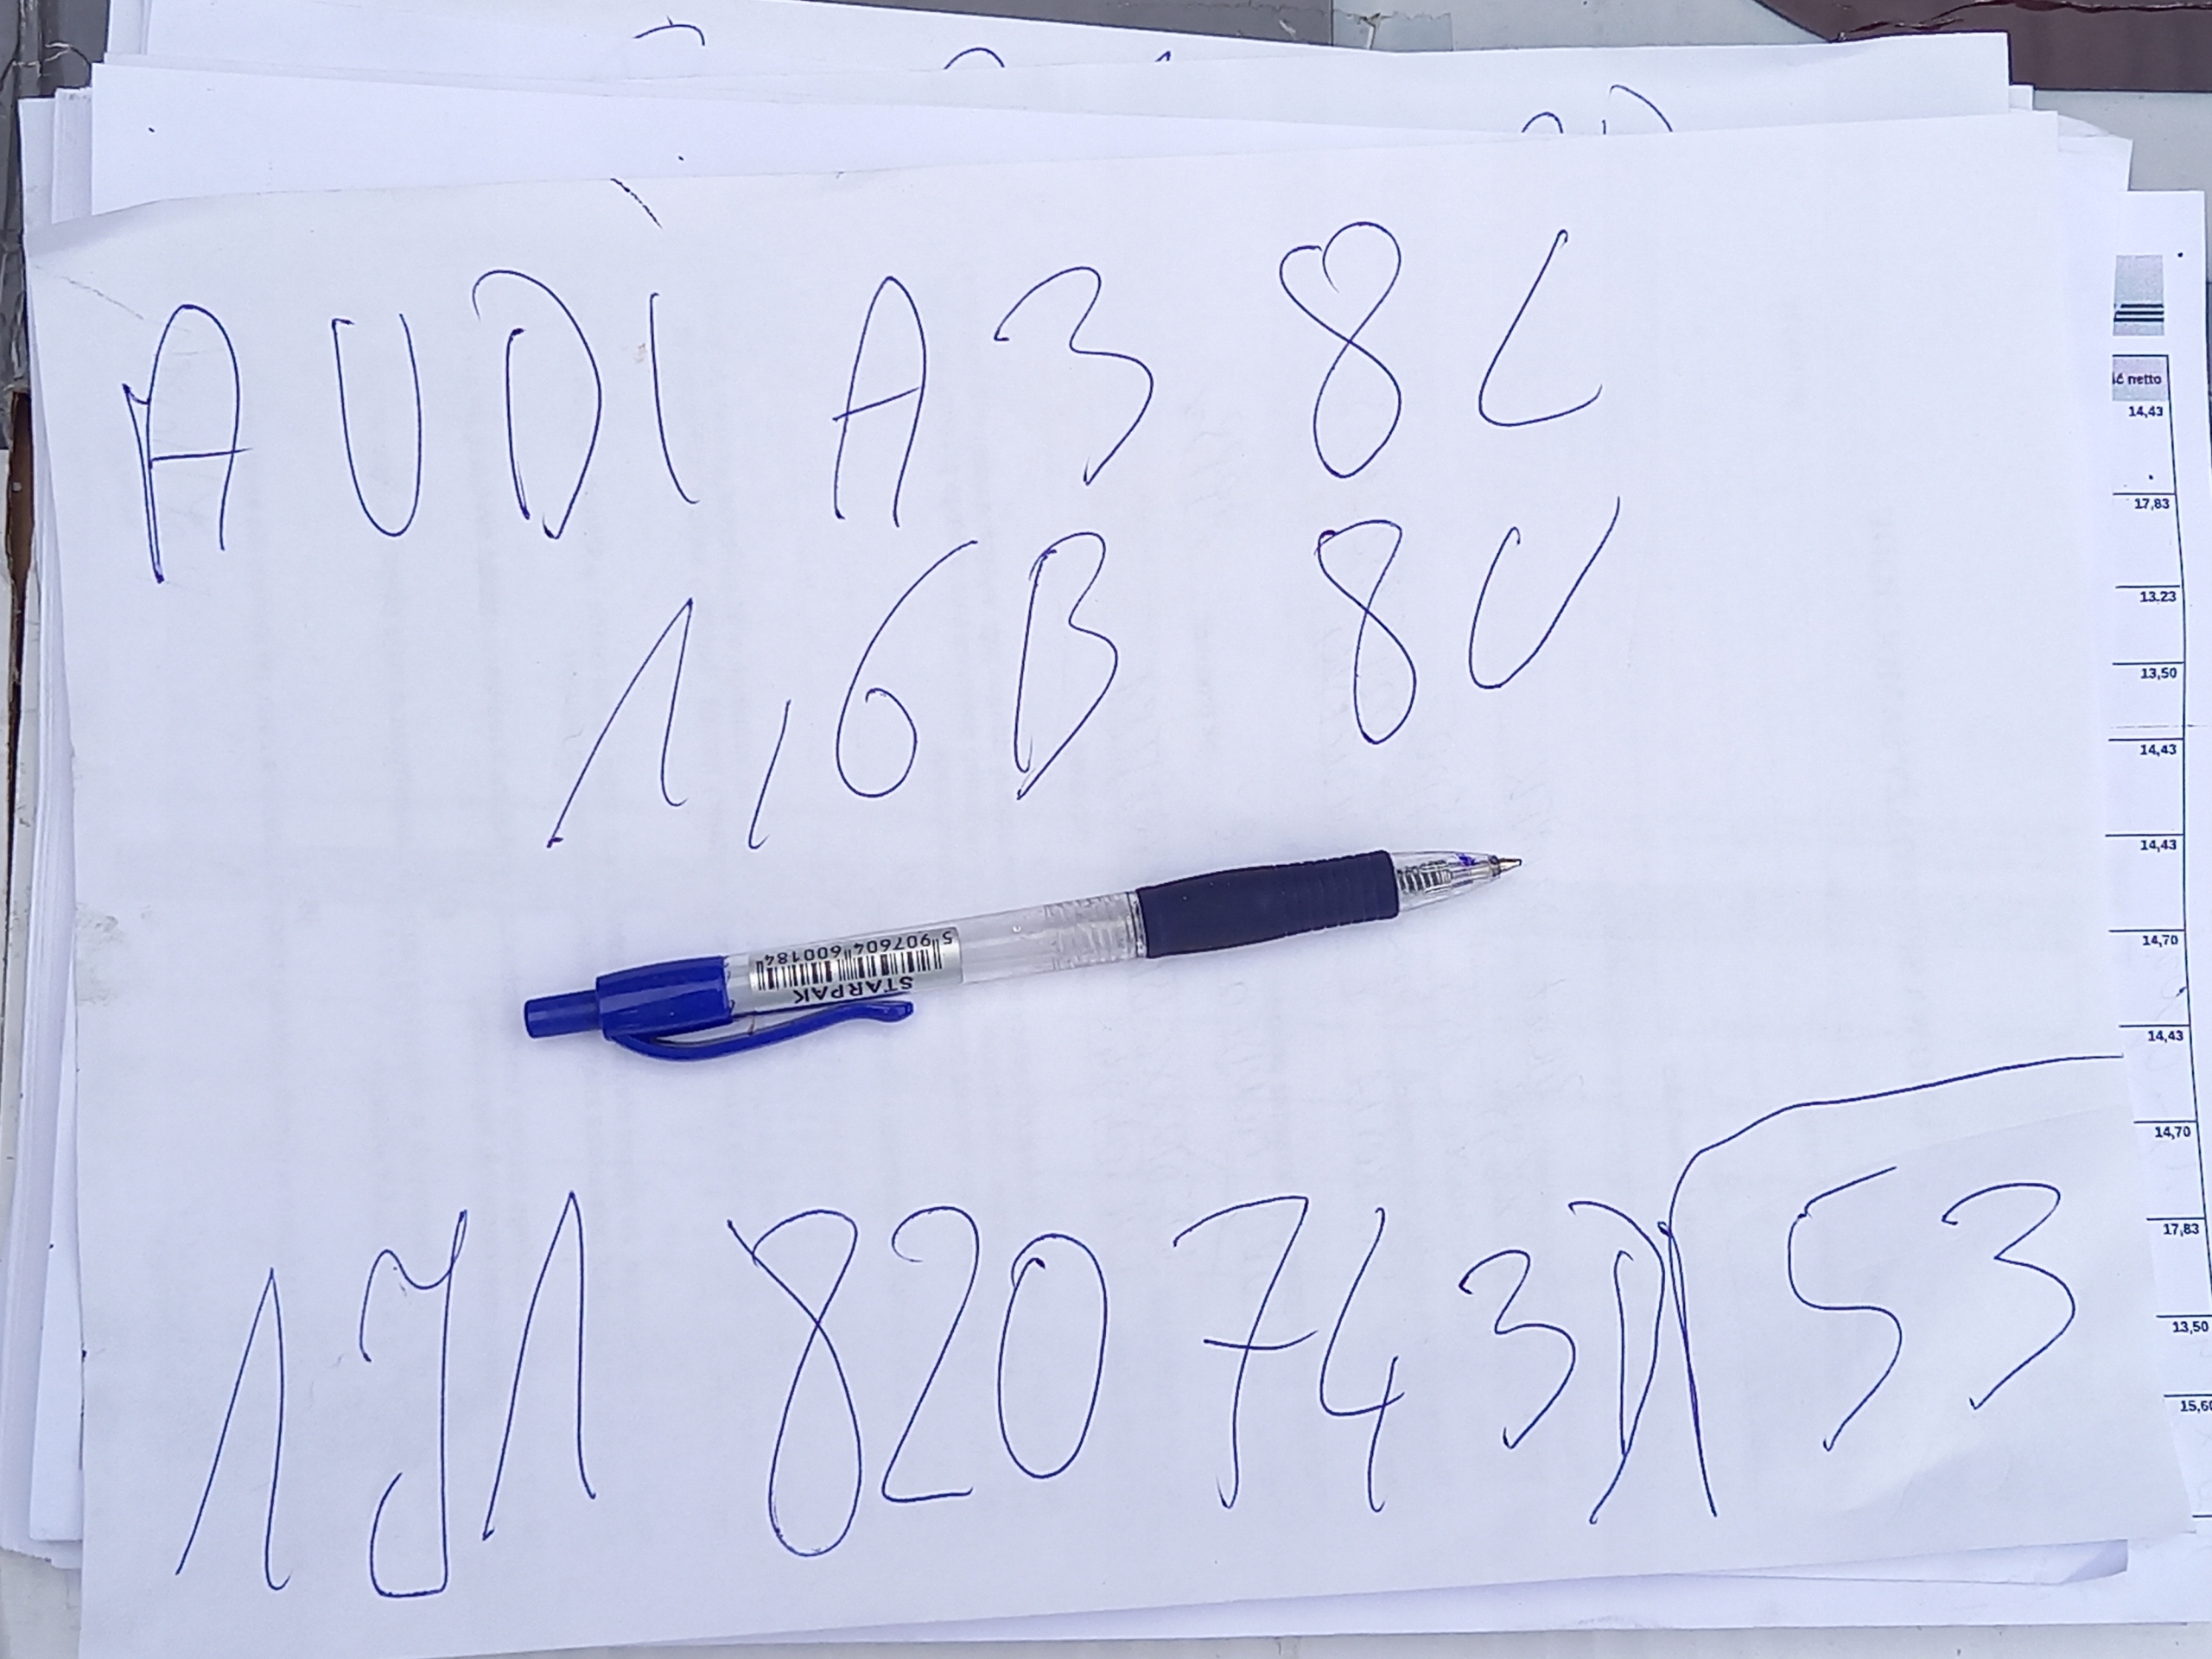 AUDI A3 8L
1,6B 8V
5 907604 600184
STARPAK
1J1 820 743D 53
ić netto
14,43
17,83
13.23
13,50
14,43
14,43
14,70
14,43
14,70
17,83
13,50
15,60